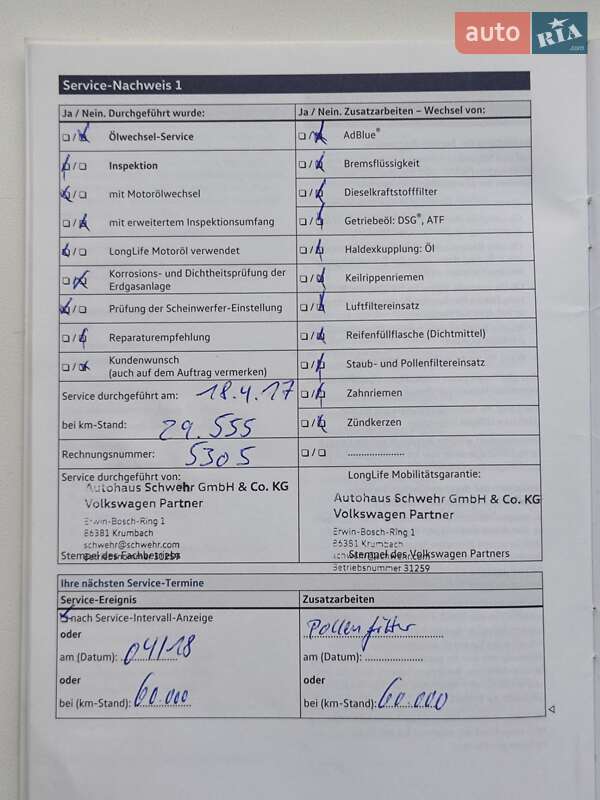 auto RIA.com
Service-Nachweis 1
Ja / Nein. Durchgeführt wurde:
Ja / Nein. Zusatzarbeiten – Wechsel von:
Ölwechsel-Service
AdBlue®
Inspektion
Bremsflüssigkeit
mit Motorölwechsel
Dieselkraftstofffilter
mit erweitertem Inspektionsumfang
Getriebeöl: DSG®, ATF
LongLife Motoröl verwendet
Haldexkupplung: Öl
Korrosions- und Dichtheitsprüfung der
Erdgasanlage
Keilrippenriemen
Prüfung der Scheinwerfer-Einstellung
Luftfiltereinsatz
Reparaturempfehlung
Reifenfüllflasche (Dichtmittel)
Kundenwunsch
(auch auf dem Auftrag vermerken)
Staub- und Pollenfiltereinsatz
Service durchgeführt am: 18.4.17
Zahnriemen
bei km-Stand: 29.555
Zündkerzen
Rechnungsnummer: 5305
.....................
Service durchgeführt von:
LongLife Mobilitätsgarantie:
Autohaus Schwehr GmbH & Co. KG
Volkswagen Partner
Erwin-Bosch-Ring 1
86381 Krumbach
schwehr@schwehr.com
Betriebsnummer 31259
Stempel des Fachbetriebs
Autohaus Schwehr GmbH & Co. KG
Volkswagen Partner
Erwin-Bosch-Ring 1
86381 Krumbach
schwehr@schwehr.com
Stempel des Volkswagen Partners
Betriebsnummer 31259
Ihre nächsten Service-Termine
Service-Ereignis
Zusatzarbeiten
nach Service-Intervall-Anzeige
oder
Pollenfilter
am (Datum): 04/18
am (Datum): .................
oder
oder
bei (km-Stand): 60.000
bei (km-Stand): 60.000